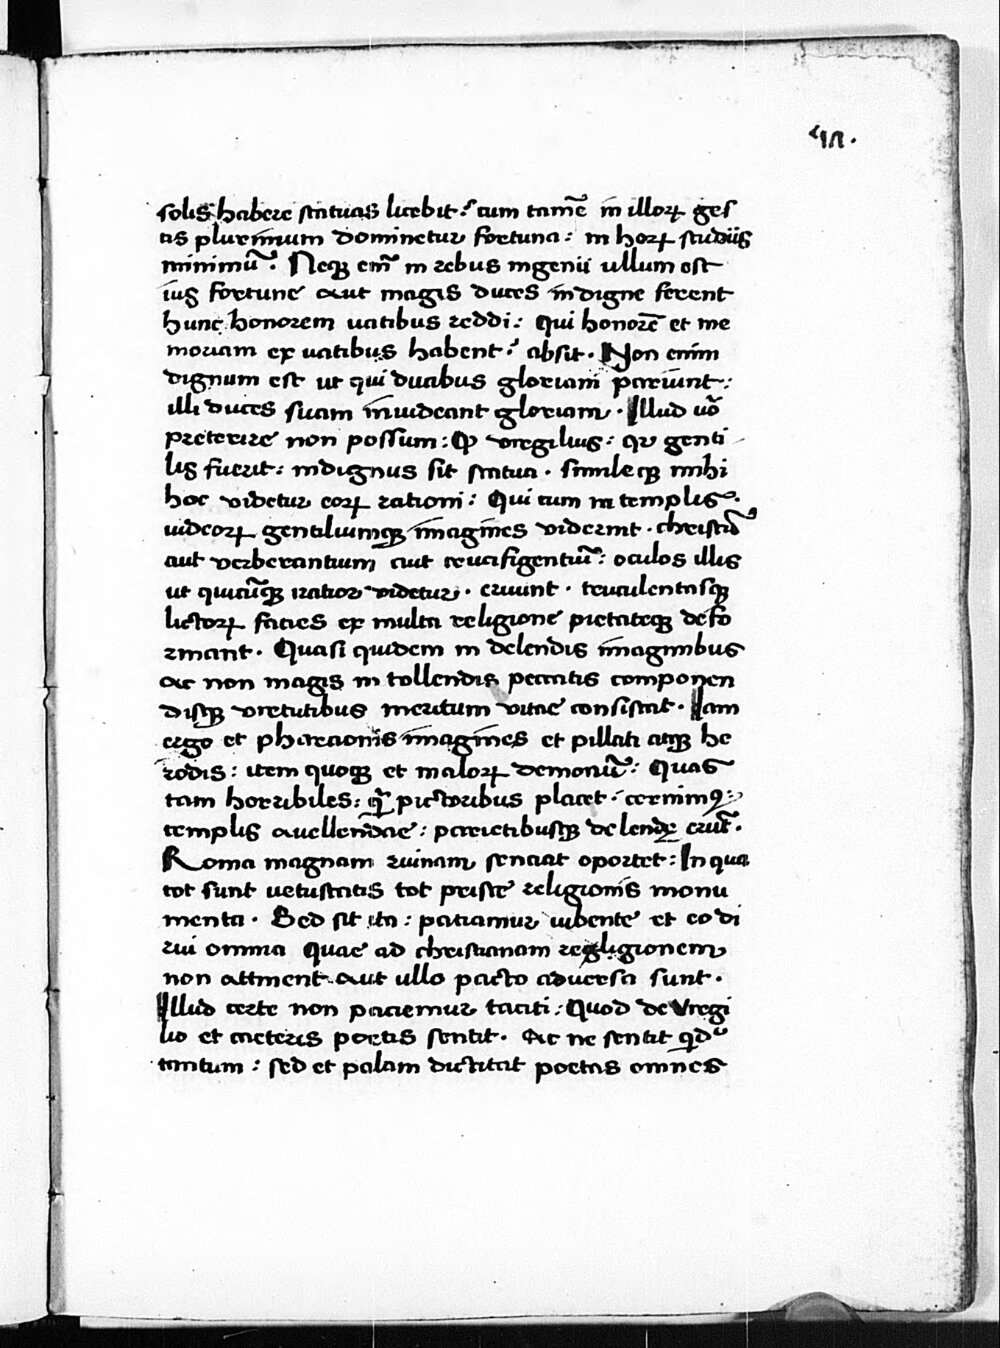 solis habere statuas licebit? cum tamē in illoꝝ ges
tis plurimum dominetur fortuna: in hoꝝ studiis
minimū. Neqꝫ em̄ in rebus ingenii ullum est
ius fortune aut magis duces indigne ferent
hunc honorem uatibus reddi: Qui honorē et me
moriam ex uatibus habent? absit. Non enim
dignum est ut qui duabus gloriam pariunt:
illi duces suam inuideant gloriam. Illud uō
preterire non possum: Qꝫ virgilius: qꝛ genti
lis fuerit: indignus sit statua. simileqꝫ mihi
hoc videtur eoꝝ rationi: Qui cum in templis
iudeoꝝ gentiliumqꝫ imagines viderint. christū
aut verberantium aut crucifigentiū: oculos illis
ut quicūqꝫ iratior videtur. eruunt. truculentasqꝫ
lictoꝝ facies ex multa religione pietateqꝫ defo
rmant. Quasi quidem in delendis imaginibus
ac non magis in tollendis peccatis componen
disqꝫ virtutibus meritum vitae consistat. Iam
ergo et pharaonis imagines et pillati atqꝫ he
rodis: item quoqꝫ et maloꝝ demoniū: Quas
tam horribiles: qꝫ̄ pictoribus placet. cernimꝰ:
templis auellendae: parietibusqꝫ delendę erūt.
Roma magnam ruinam senciat oportet: In qua
tot sunt uetustatis tot priscē religionis monu
menta. Sed sit ita: patiamur iubente et eo di
rui omnia Quae ad christianam regligionem
non attinent aut ullo pacto aduersa sunt.
Illud certe non paciemur taciti: Quod de Virgi
lio et caeteris poetis sentit. Ac ne sentit qd̓
tantum: sed et palam dictitat poetas omnes